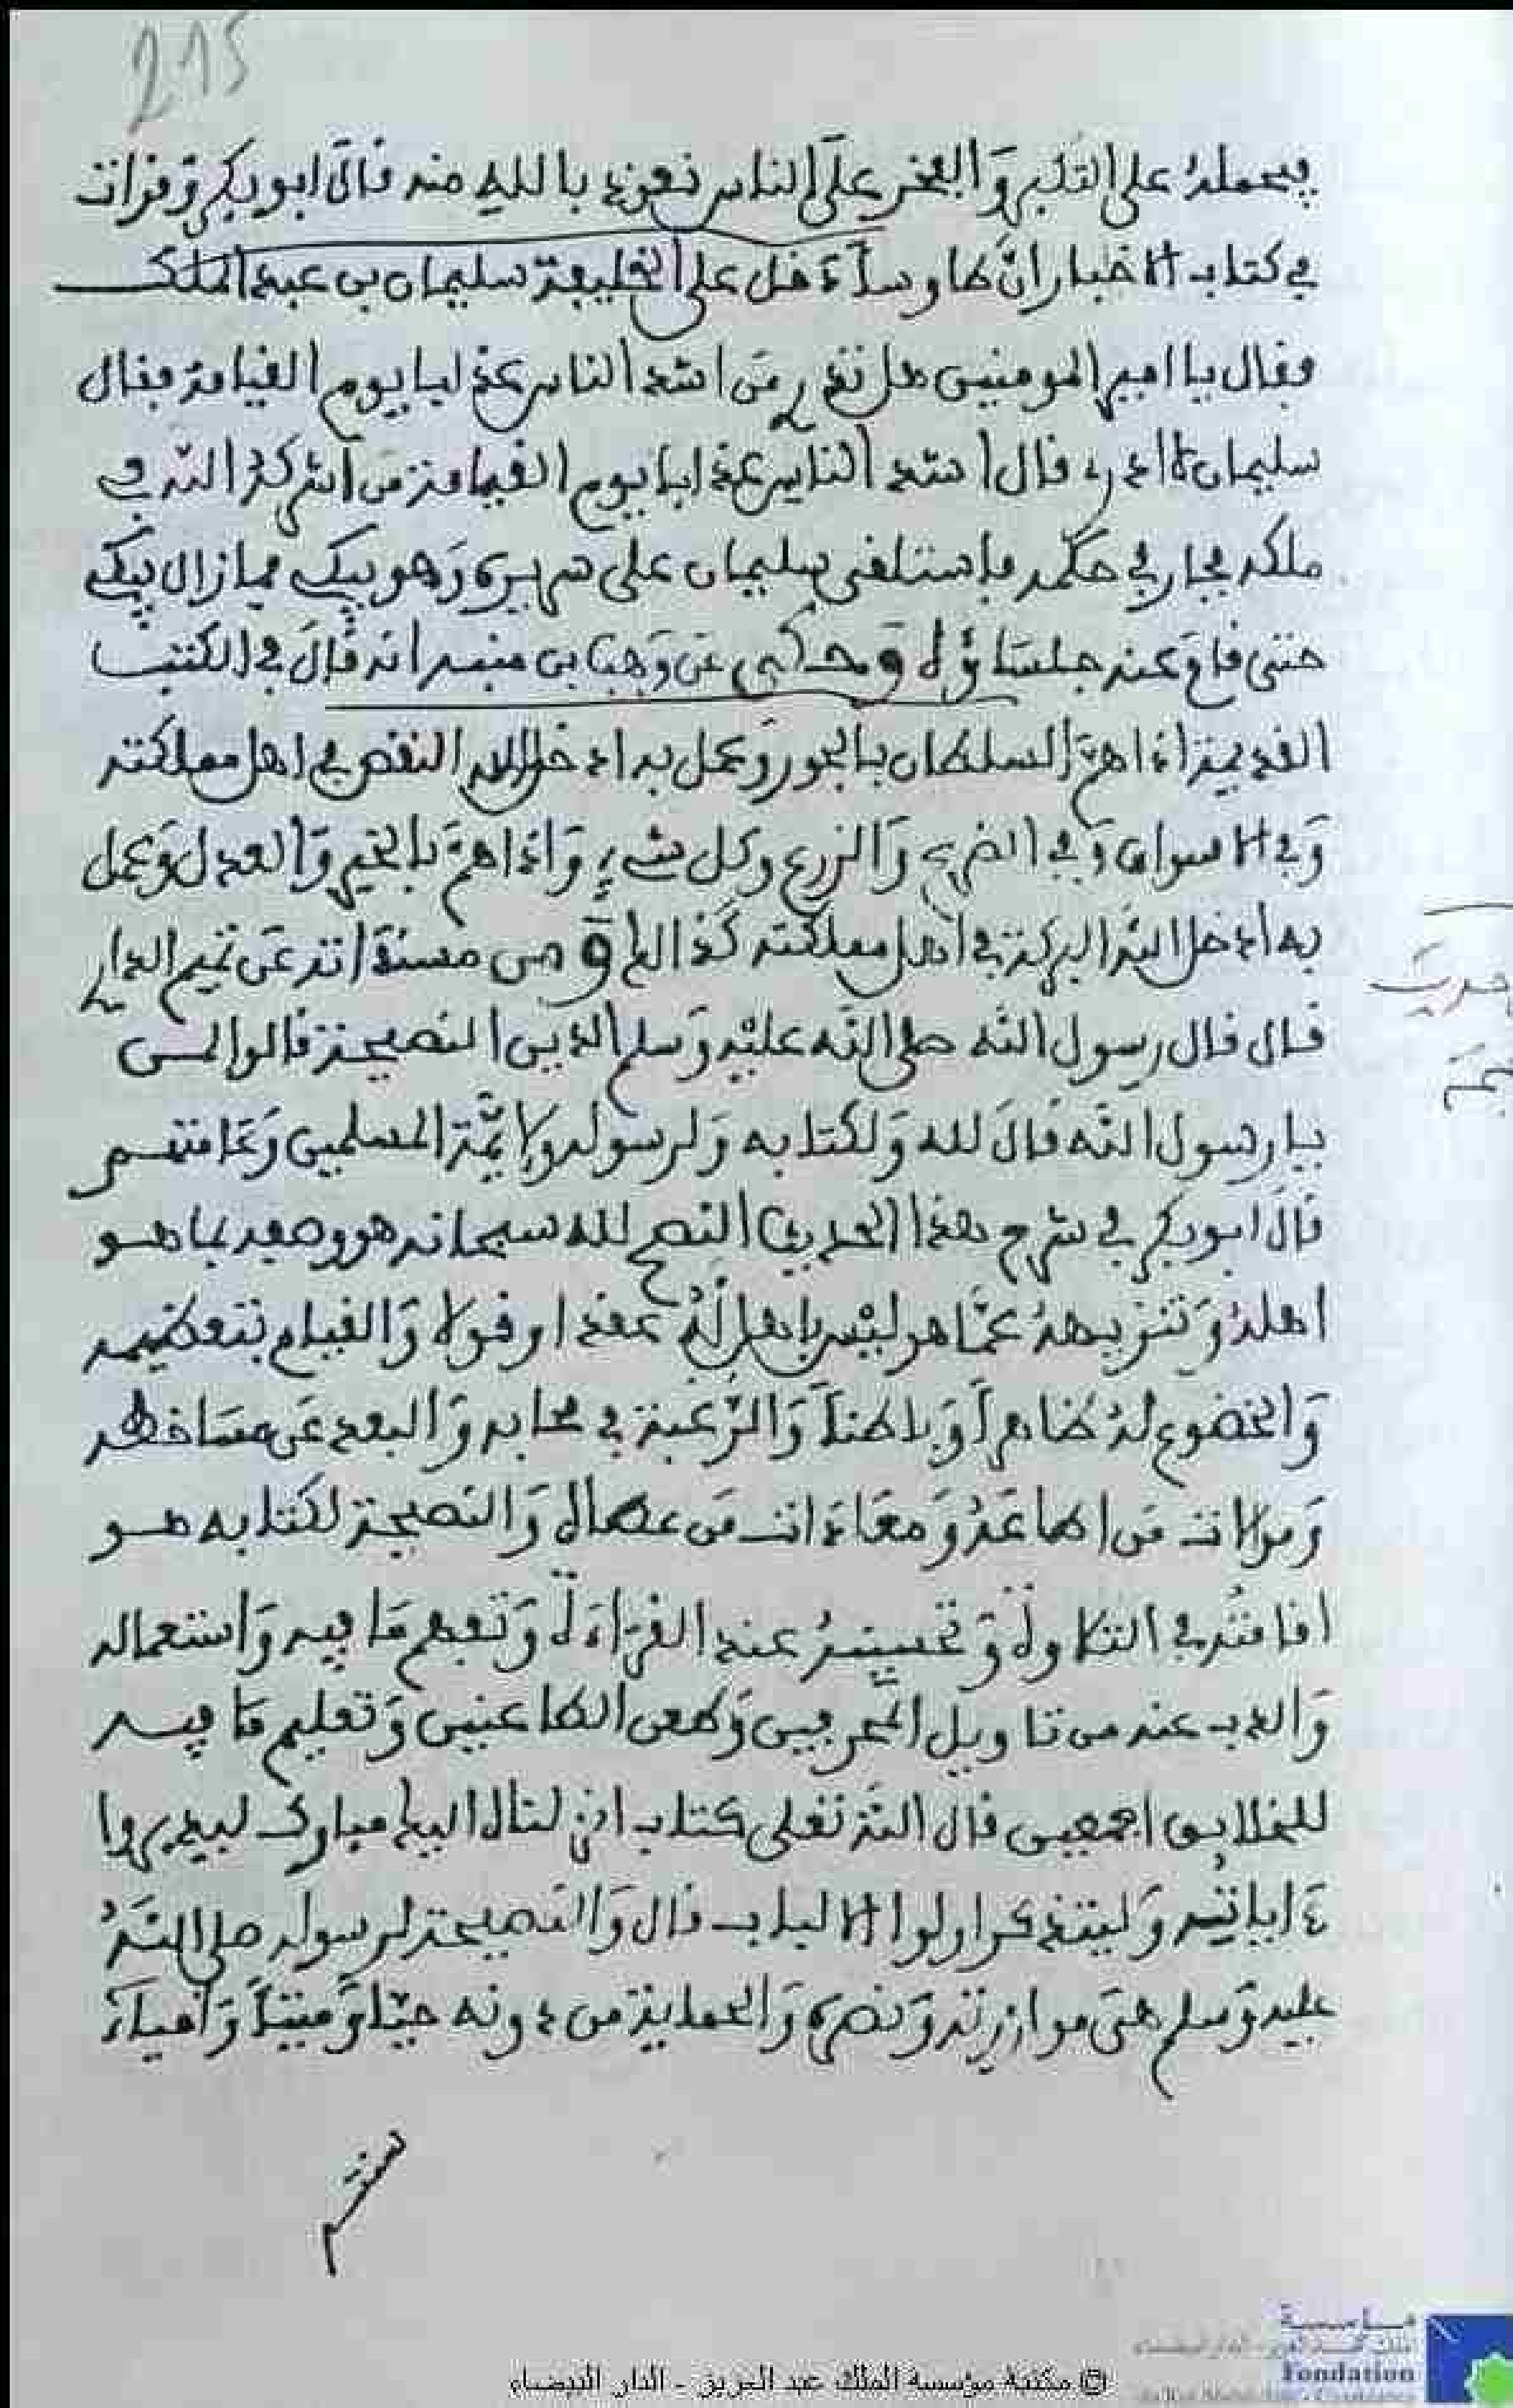 215
فيحمله على التكبر وَالفخر علَى الناس نعوذ بالله منه قالَ ابو بكر وَقرات
في كتاب الاخبار انَّ طاوساً دخل على الخليفة سليمان بن عبد الملك
فقال يا امير المومنين هل تدري مَن اشد الناس عذابا يوم القيامة فقال
سليمان لا ادري قال اشد الناس عذابا يوم القيامة مَن اشركه الله في
ملكه فجار في حكمه فاستلقى سليمان على سريره وَهو يبكي فمازال يبكي
حتى قام عنه جلسَاؤه وَحكي عَن وَهب بن منبه انه قالَ في الكتب
القديمة اذا همَّ السلطان بالجور وَعمل به ادخل الله النقص في اهل مملكته
وَفي الاسواق وَفي الضرع وَالزرع وكل شيء وَاذا همَّ بالخير وَالعدل وَعمل
به ادخل الله البركة في اهل مملكته كذالك وَمن مسنداته عَن تميم الداري
قال قال رسول الله صلى الله عليْه وَسلم الدين النصيحة قالوا لمن
يا رسول الله قالَ لله وَلكتابه وَلرسوله ولايمَّة المسلمين وَعَامتهم
قالَ ابو بكر في شرح هذا الحديث النصح لله سبحانه هو وصفه بما هو
اهلهُ وَتنزيههُ عمَّا هو ليْس باهل لهُ عقدا وقولا وَالقيام بتعظيمه
وَالخضوع لهُ ظاهراً وَباطناً وَالرَّغبة في محابه وَالبعد عَن مسَاخطه
وَموالات مَن اطاعَهُ وَمعَادات مَن عصاه وَالنصيحة لكتابه هو
اقامتُه في التلاوة وَتحسينهُ عند القرَاءة وَتفهم مَا فيه وَاستعماله
وَالذب عنه من تاويل المحرفين وَطعن الطاعنين وَتعليم مَا فيه
للخلايق اجمعين قال الله تعلى كتاب انزلناه اليك مبارك ليدبروا
ءاياته وَليتذكر اولوا الالباب قال وَالنصيحة لرسوله صلى اللهُ
عليه وَسلم هي موازرته وَنصره وَالحماية من دونه حيّاً وَميتاً وَاحياء
سنته
حديث
© مكتبة مؤسسة الملك عبد العزيز - الدار البيضاء
مؤسسة
Fondation